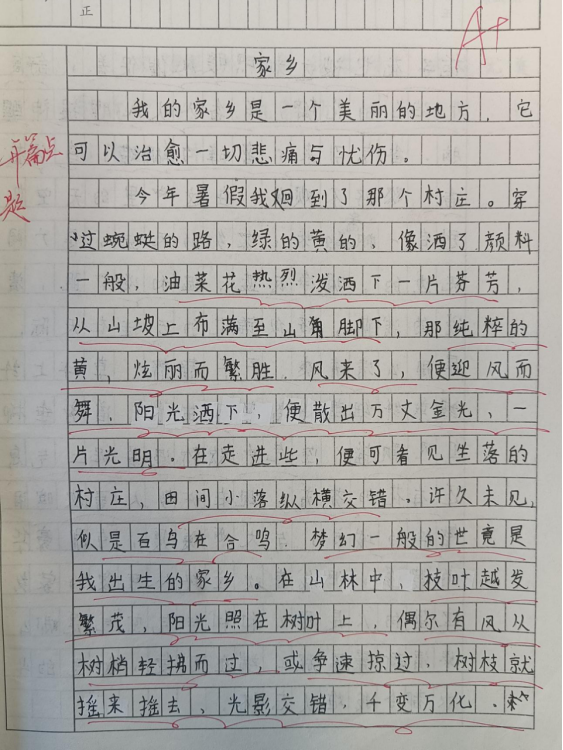 正
A+
家乡
我的家乡是一个美丽的地方，它
开篇点题
可以治愈一切悲痛与忧伤。
今年暑假我回到了那个村庄。穿
过蜿蜒的路，绿的黄的，像洒了颜料
一般，油菜花热烈泼洒下一片芬芳，
从山坡上布满至山角脚下，那纯粹的
黄，炫丽而繁胜．风来了，便迎风而
舞．阳光洒下，便散出万丈金光、一
片光明。在走进些，便可看见坐落的
村庄，田间小落纵横交错．许久未见，
似是百鸟在合鸣．梦幻一般的世竟是
我出生的家乡。在山林中，枝叶越发
繁茂，阳光照在树叶上，偶尔有风从
树梢轻拂而过，或争速掠过．树枝就
摇来摇去、光影交错．千变万化．